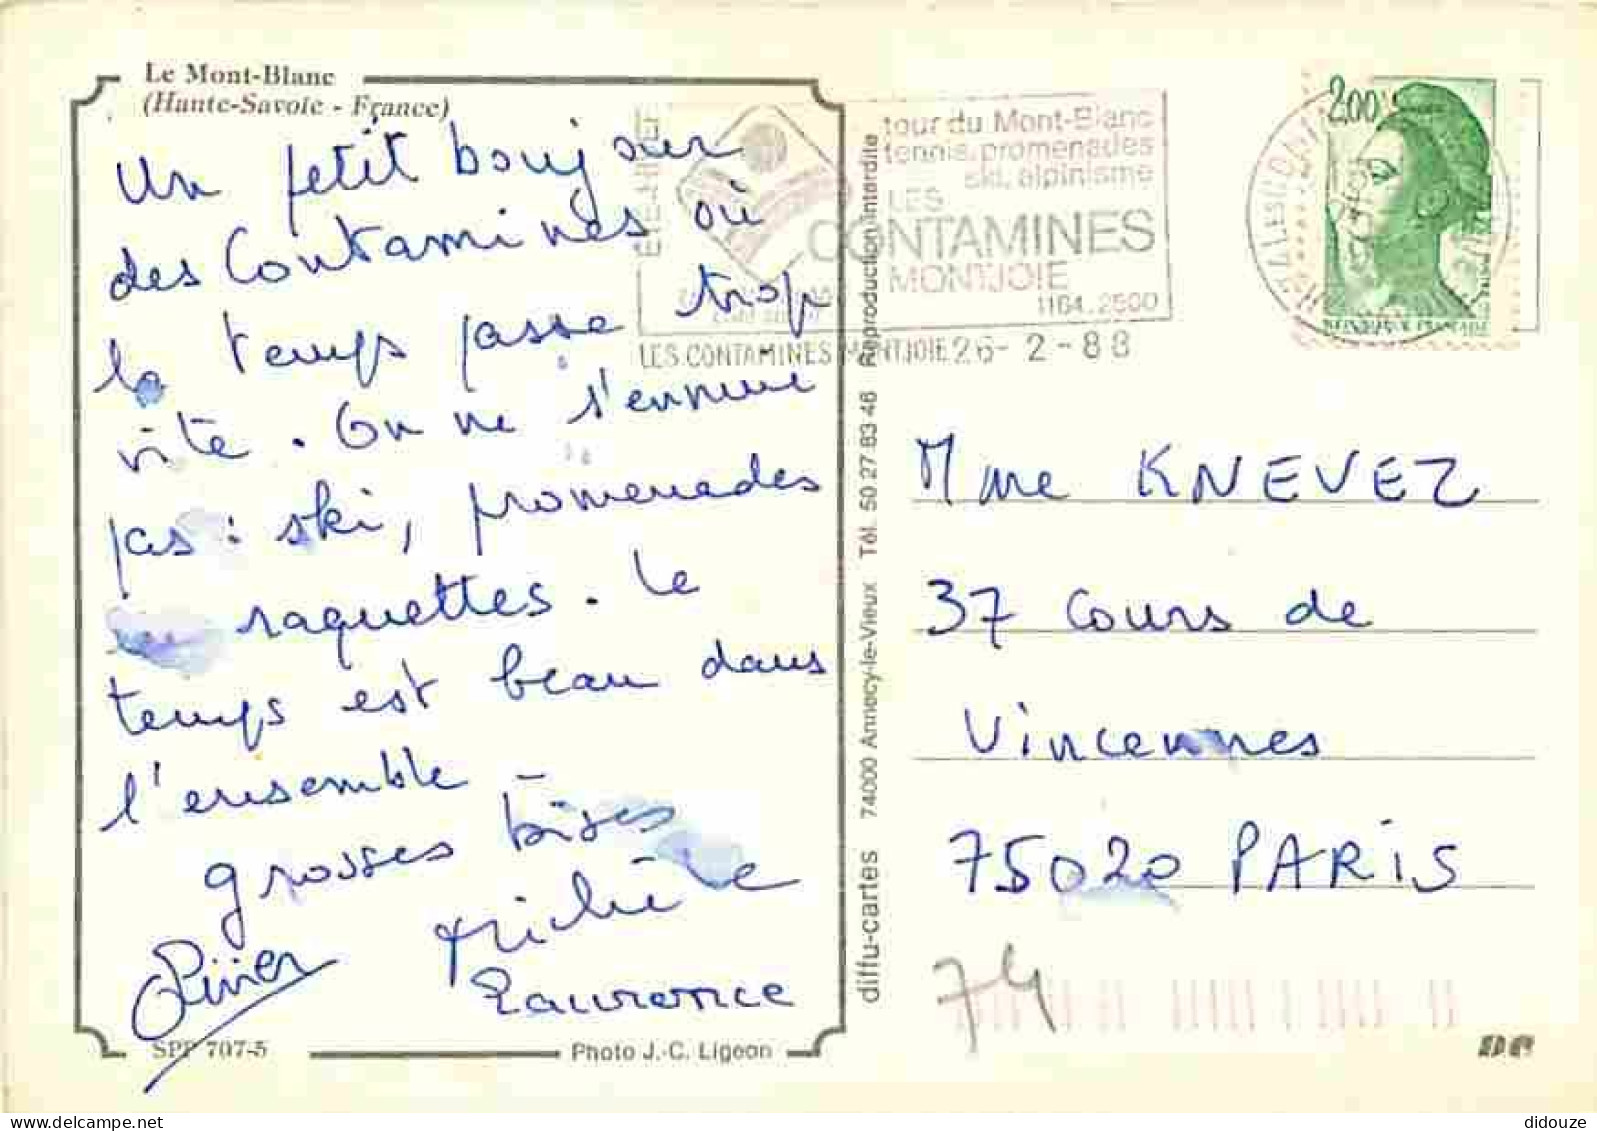 Le Mont-Blanc
(Haute-Savoie - France)
Un petit bonjour
des Contamines où
le temps passe trop
vite. On ne s'ennuie
pas : ski, promenades
en raquettes. Le
temps est beau dans
l'ensemble
grosses bises
Michèle
Olivier
Laurence
SPP 707-5
Photo J.-C. Ligeon
diffu-cartes 74000 Annecy-le-Vieux Tél. 50 27 83 46 Reproduction interdite
ETE-HIVER
tour du Mont-Blanc
tennis, promenades
ski, alpinisme
LES
CONTAMINES
MONTJOIE
1164.2500
LES CONTAMINES MONTJOIE 26-2-88
2,00
Mme KNEVEZ
37 Cours de
Vincennes
75020 PARIS
74
DC
didouze